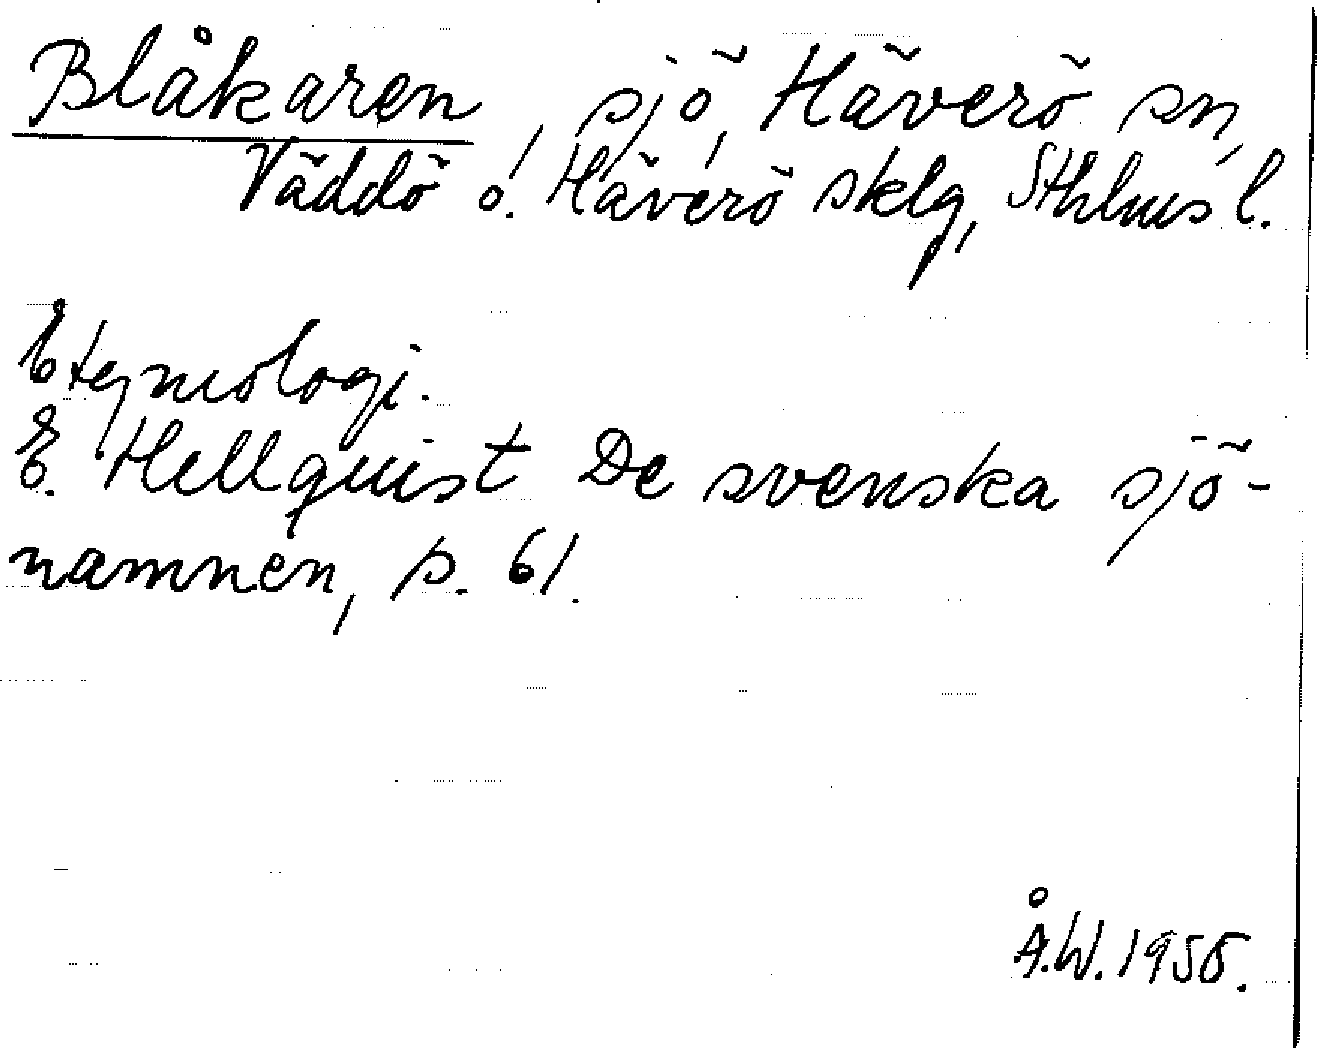 Blåkaren, sjö, Häverö sn,
Väddö o. Häverö sklg, Sthlms l.
Etymologi.
E. Hellquist De svenska sjö-
namnen, s. 61.
Å.W. 1955.